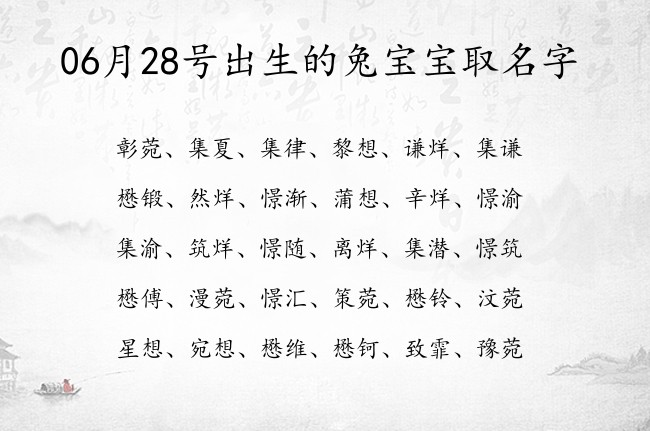 06月28号出生的兔宝宝取名字
彰菀、集夏、集律、黎想、谦烊、集谦
懋锻、然烊、憬渐、蒲想、辛烊、憬渝
集渝、筑烊、憬随、离烊、集潜、憬筑
懋傅、漫菀、憬汇、策菀、懋铃、汶菀
星想、宛想、懋维、懋钶、致霏、豫菀